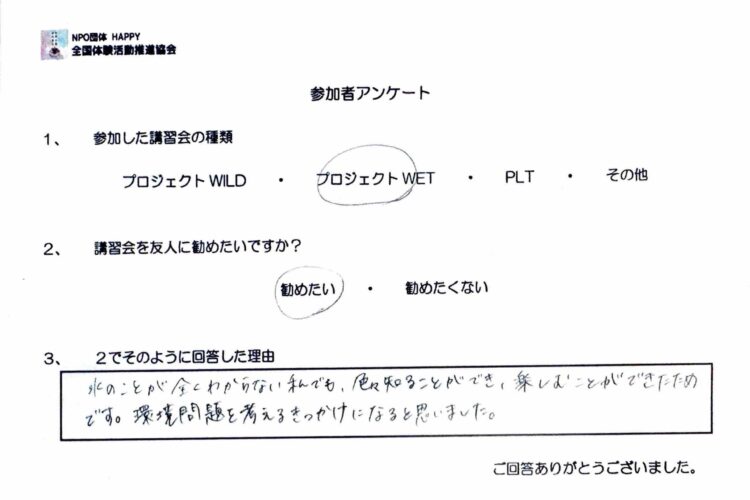 NPO団体 HAPPY
全国体験活動推進協会
参加者アンケート
1、 参加した講習会の種類
プロジェクト WILD ・ プロジェクト WET ・ PLT ・ その他
2、 講習会を友人に勧めたいですか？
勧めたい ・ 勧めたくない
3、 2でそのように回答した理由
水のことが全くわからない私でも、色々知ることができ、楽しむことができたため
です。環境問題を考えるきっかけになると思いました。
ご回答ありがとうございました。